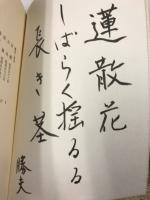 蓮散花
しばらく揺るる
長き茎
勝夫